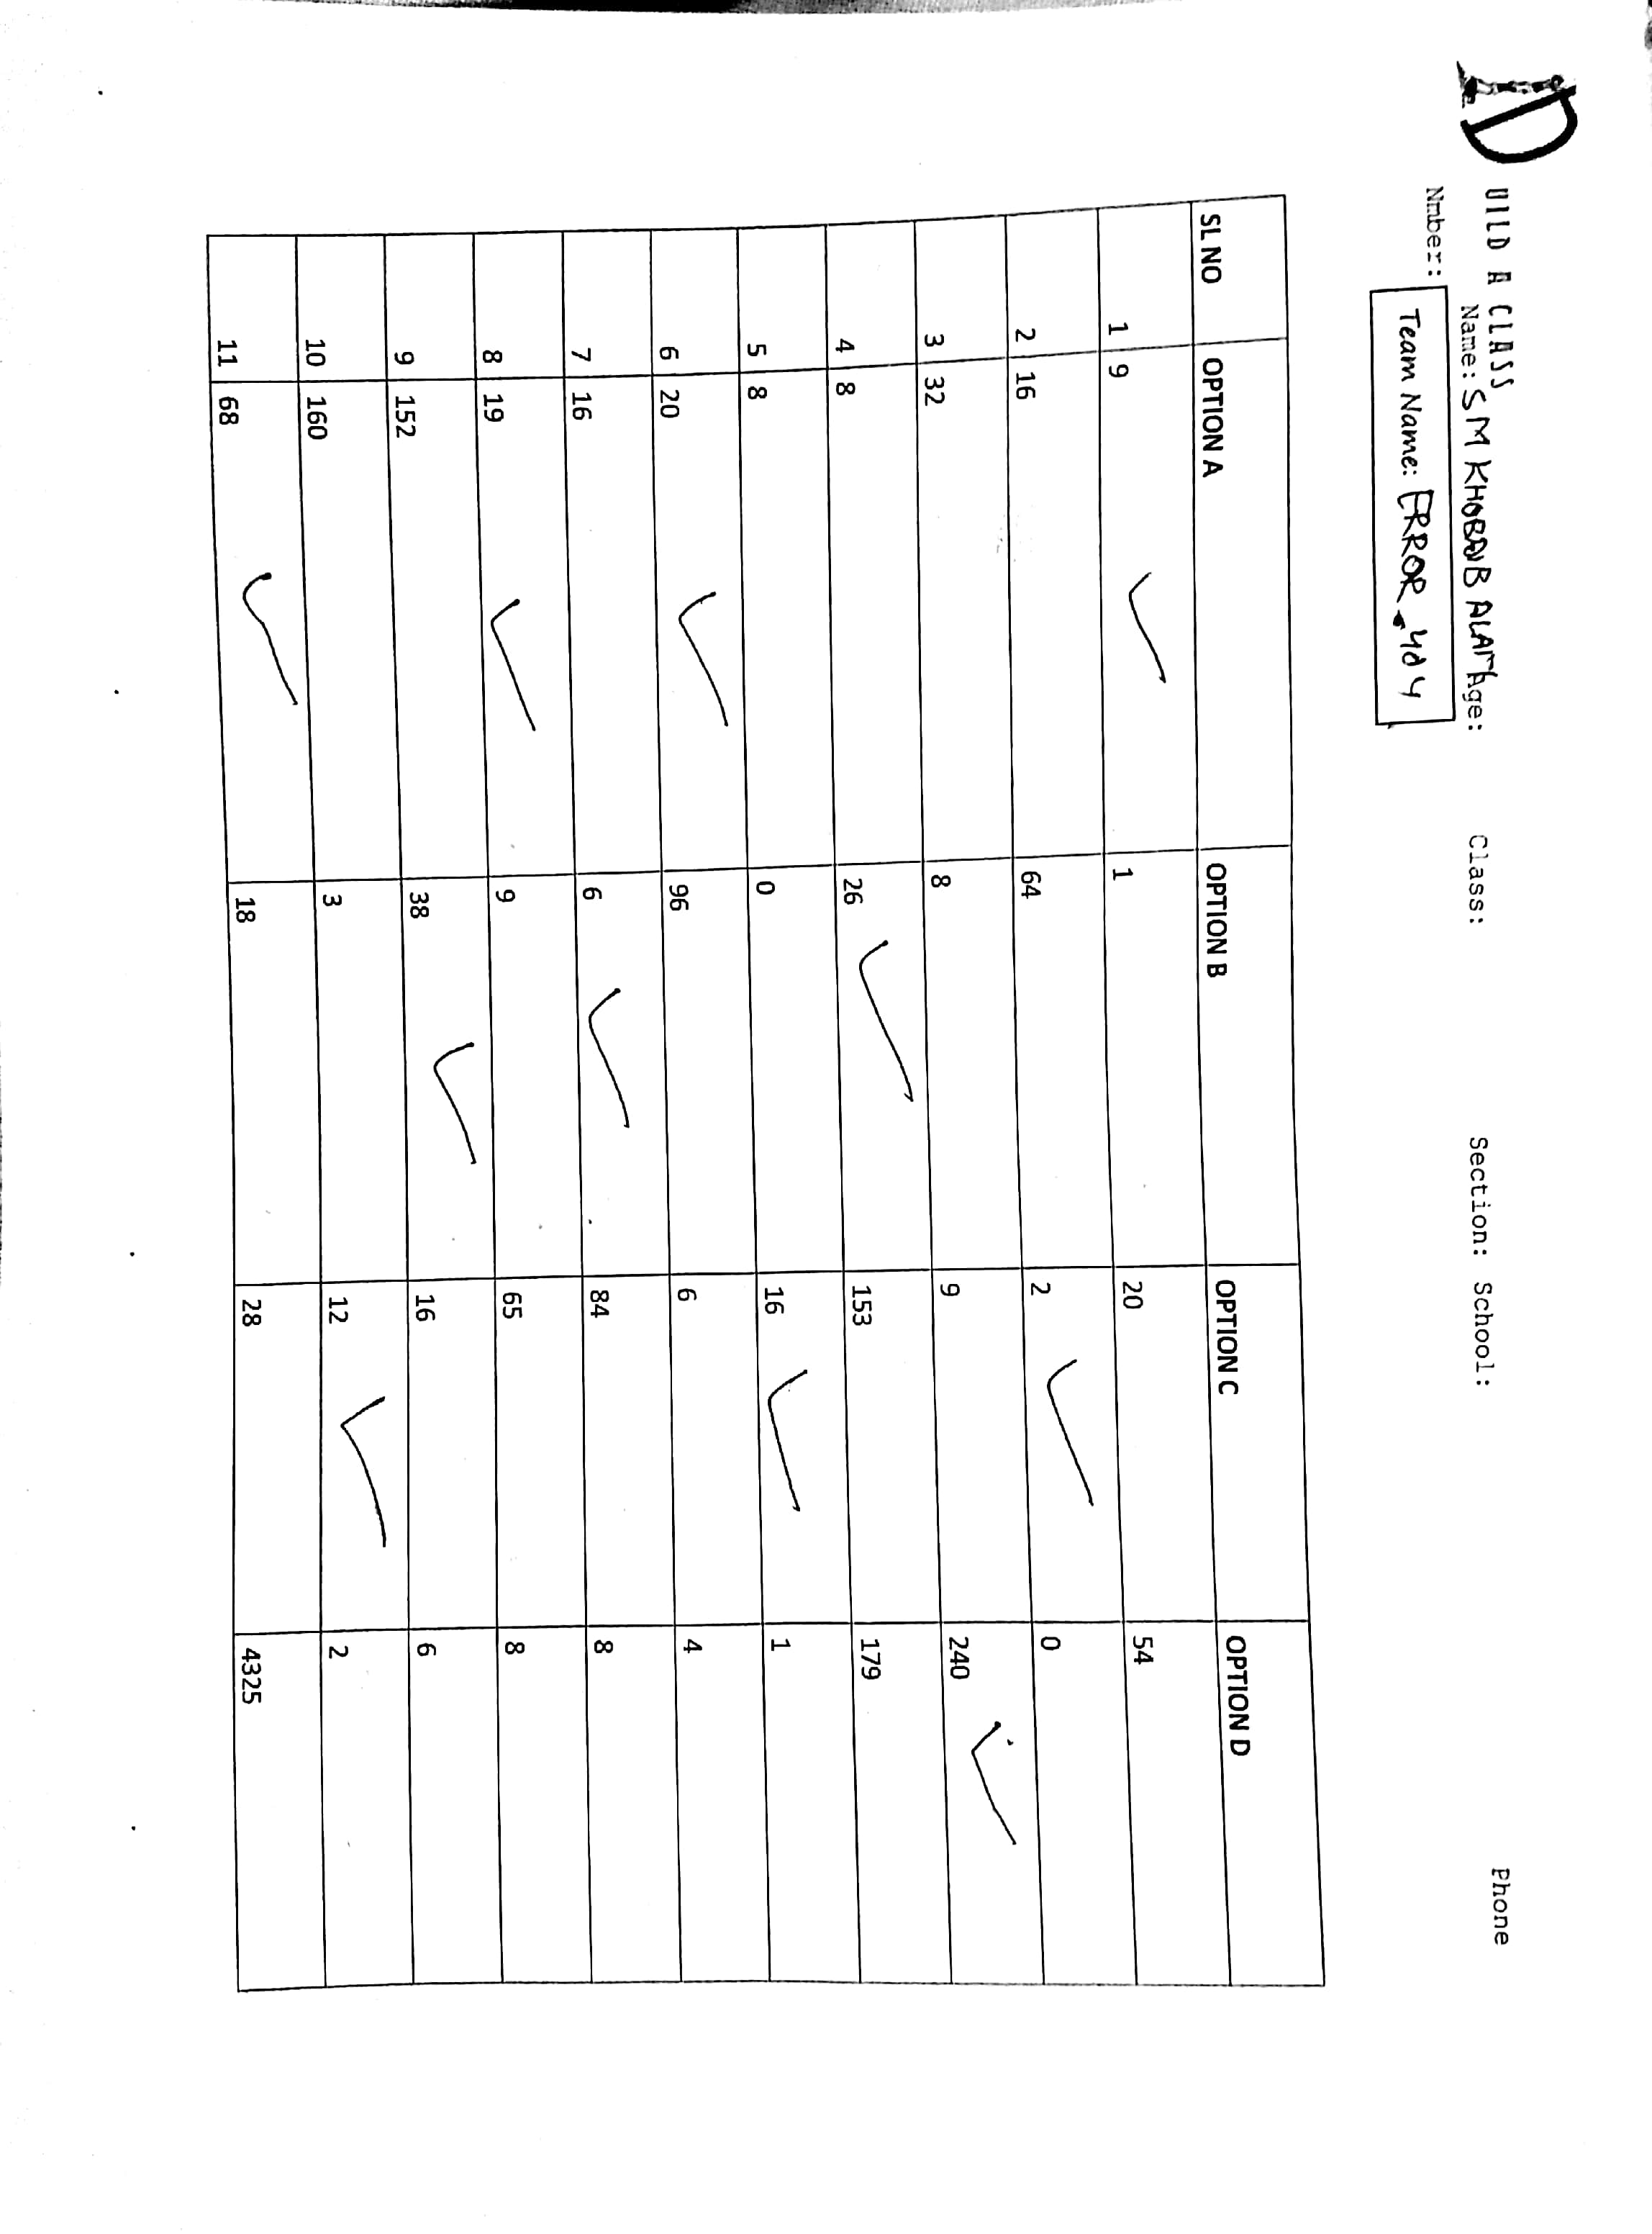 D UILD A CLASS
Name: SM KHOBAIB ALAM Age: Class: Section: School: Phone
Nmber:
Team Name: ERROR_404
SL NO OPTION A OPTION B OPTION C OPTION D
1 9 ✓ 1 20 54
2 16 64 2 ✓ 0
3 32 8 9 240 ✓
4 8 26 ✓ 153 179
5 8 0 16 ✓ 1
6 20 ✓ 96 6 4
7 16 6 ✓ 84 8
8 19 ✓ 9 65 8
9 152 38 ✓ 16 6
10 160 3 12 ✓ 2
11 68 ✓ 18 28 4325